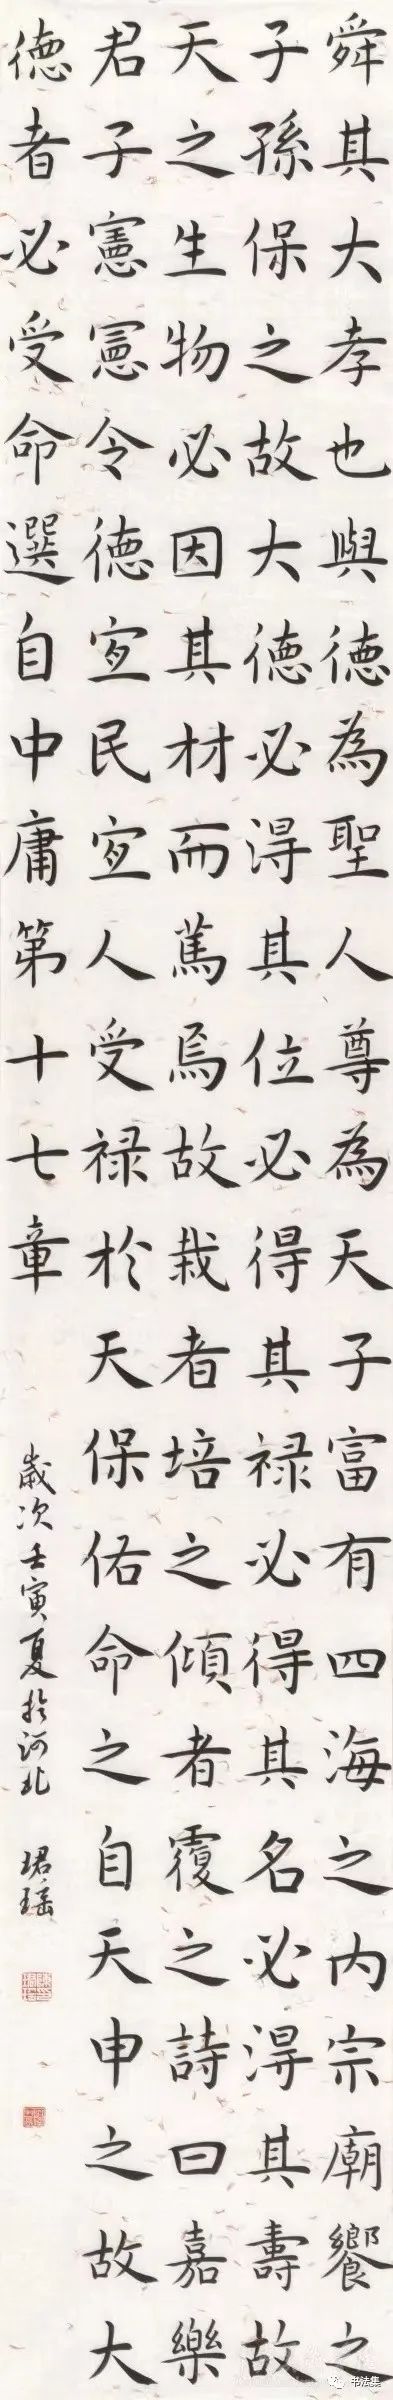 舜其大孝也與德為聖人尊為天子富有四海之内宗廟饗之
子孫保之故大德必淂其位必得其禄必得其名必淂其壽故
天之生物必因其材而篤焉故栽者培之傾者覆之詩曰嘉樂
君子憲憲令德宜民宜人受禄於天保佑命之自天申之故大
德者必受命選自中庸第十七章
歲次壬寅夏於河北 珺瑶
书法集